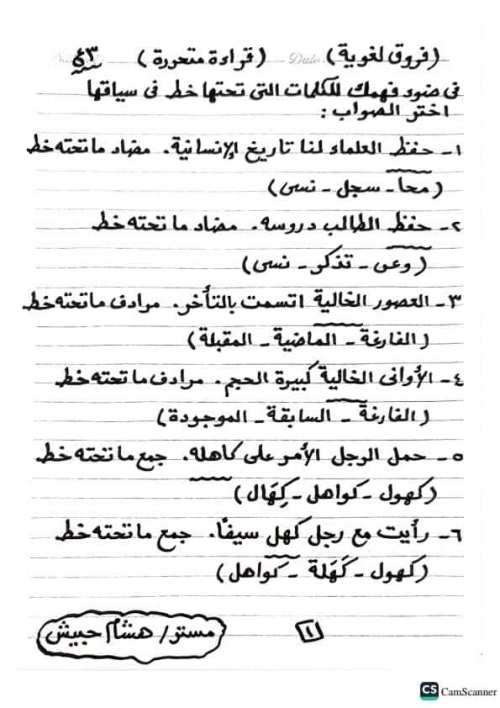 (فروق لغوية) (قراءة متحررة) ٤٣
فى ضوء فهمك للكلمات التى تحتها خط فى سياقها
اختر الصواب :
١- حفظ العلماء لنا تاريخ الإنسانية. مضاد ما تحته خط
(محا - سجل - نسى)
٢- حفظ الطالب دروسه. مضاد ما تحته خط
(وعى - تذكر - نسى)
٣- العصور الخالية اتسمت بالتأخر. مرادف ما تحته خط
(الفارغة - الماضية - المقبلة)
٤- الأوانى الخالية كبيرة الحجم. مرادف ما تحته خط
(الفارغة - السابقة - الموجودة)
٥- حمل الرجل الأمر على كاهله. جمع ما تحته خط
(كهول - كواهل - كِهَال)
٦- رأيت مع رجل كهل سيفًا. جمع ما تحته خط
(كهول - كَهَلة - كواهل)
١
مستر/ هشام حبيش
CS CamScanner